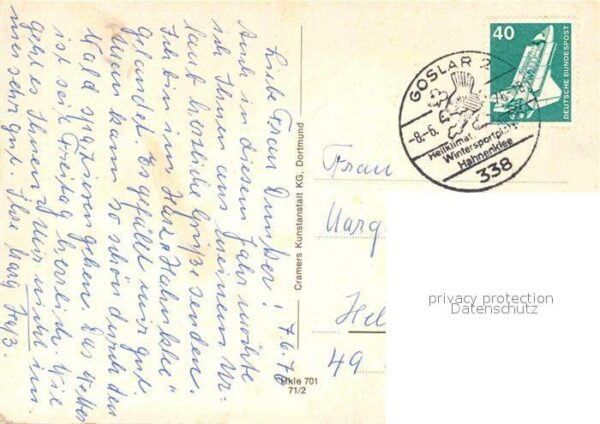 Liebe Frau Dunker! 7.6.76
Auch in diesem Jahr möchte
ich Ihnen aus meinem Ur-
laub herzliche Grüße senden.
Ich bin im Harz "Hahnklee"
gelandet. Es gefällt mir gut.
Man kann so schön durch den
Wald spazierengehen. Das Wetter
ist seit Freitag herrlich. Wie
geht es Ihnen? Mir nicht im-
mer sehr gut. Ihre Marg.
Cramers Kunstanstalt KG, Dortmund
Hkle 701
71/2
40
DEUTSCHE BUNDESPOST
GOSLAR 2
-8.-6.
Heilklimat.
Wintersportpl
Hahnenklee
338
Frau
Marg
Hel
49
privacy protection
Datenschutz